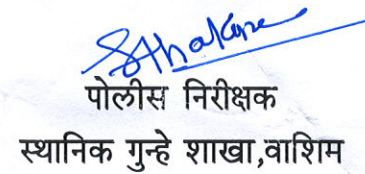 पोलीस निरीक्षक
स्थानिक गुन्हे शाखा,वाशिम